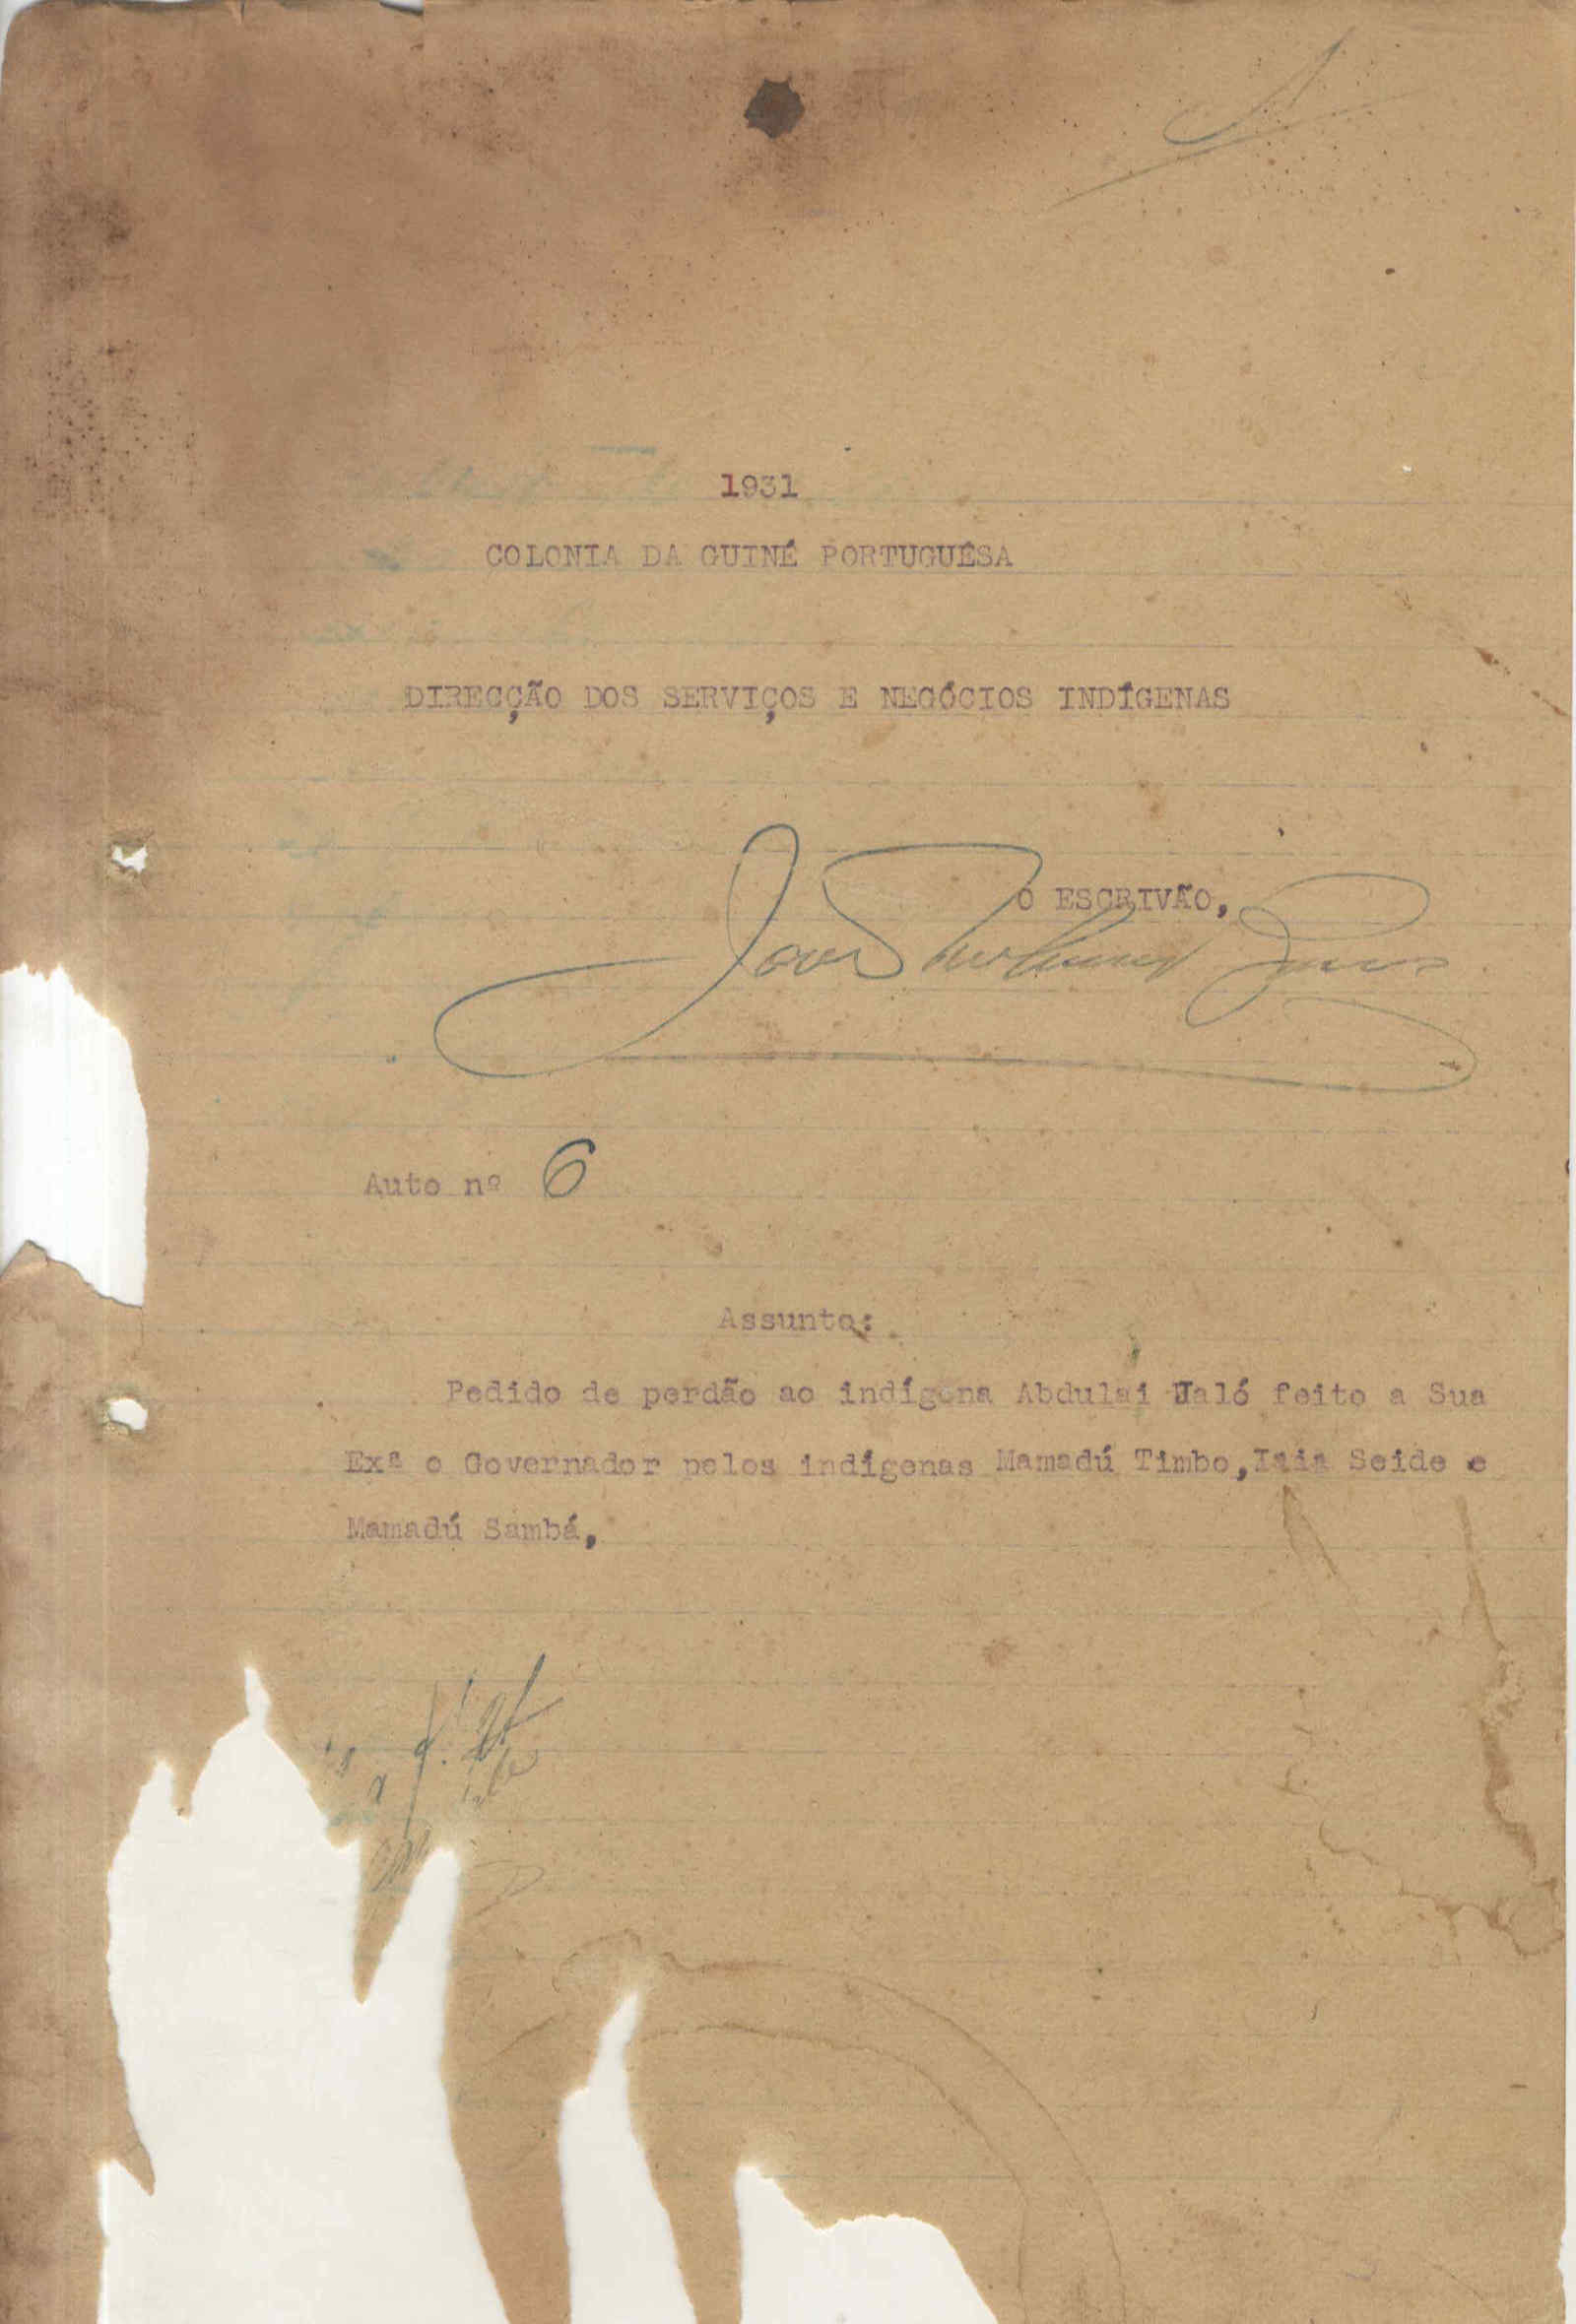 1931
COLONIA DA GUINÉ PORTUGUÊSA
DIRECÇÃO DOS SERVIÇOS E NEGÓCIOS INDÍGENAS
O ESCRIVÃO,
Auto nº 6
Assunto:
Pedido de perdão ao indígena Abdulai Ualó feito a Sua
Exª o Governador pelos indígenas Mamadú Timbo, Iaia Seide e
Mamadú Sambá,